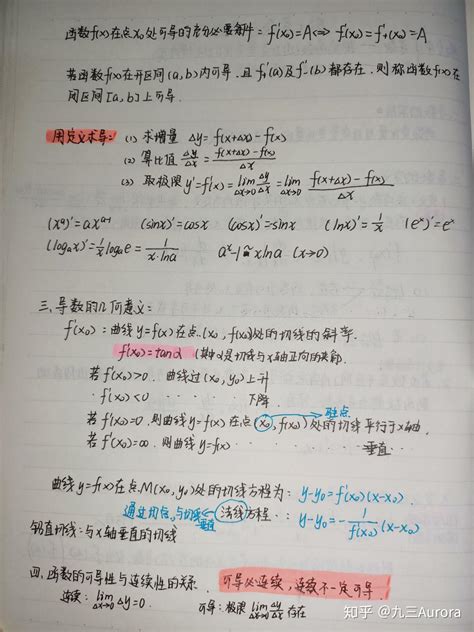 函数f(x)在点x₀处可导的充分必要条件 = f'(x₀)=A⇔f'₋(x₀)=f'₊(x₀)=A
若函数f(x)在开区间(a,b)内可导,且f'₊(a)及f'₋(b)都存在,则称函数f(x)在
闭区间[a,b]上可导.
用定义求导: (1) 求增量 Δy=f(x+Δx)-f(x)
(2) 算比值 Δy/Δx = (f(x+Δx)-f(x))/Δx
(3) 取极限 y'=f'(x)=lim(Δx→0) Δy/Δx = lim(Δx→0) (f(x+Δx)-f(x))/Δx
(xᵃ)'=axᵃ⁻¹ (sinx)'=cosx (cosx)'=sinx (lnx)'=1/x (eˣ)'=eˣ
(logₐx)'=1/x logₐe=1/(x·lna) aˣ-1~xlna (x→0)
三、导数的几何意义:
f'(x₀):曲线y=f(x)在点(x₀,f(x₀))处的切线的斜率.
f'(x₀)=tanα (其中α是切线与x轴正向的夹角.
若f'(x₀)>0. 曲线过(x₀,y₀)上升
f'(x₀)<0 下降.
若f'(x₀)=0,则曲线y=f(x)在点(x₀,f(x₀))处的切线平行于x轴. 驻点
若f'(x₀)=∞. 则曲线y=f(x) 垂直
曲线y=f(x)在点M(x₀,y₀)处的切线方程为: y-y₀=f'(x₀)(x-x₀)
通过切点,与切线垂直 法线方程 : y-y₀=-1/f'(x₀)(x-x₀)
铅直切线:与x轴垂直的切线
四、函数的可导性与连续性的关系. 可导必连续,连续不一定可导
连续: lim(Δx→0) Δy=0. 可导:极限lim(Δx→0) Δy/Δx 存在
知乎 @九三Aurora